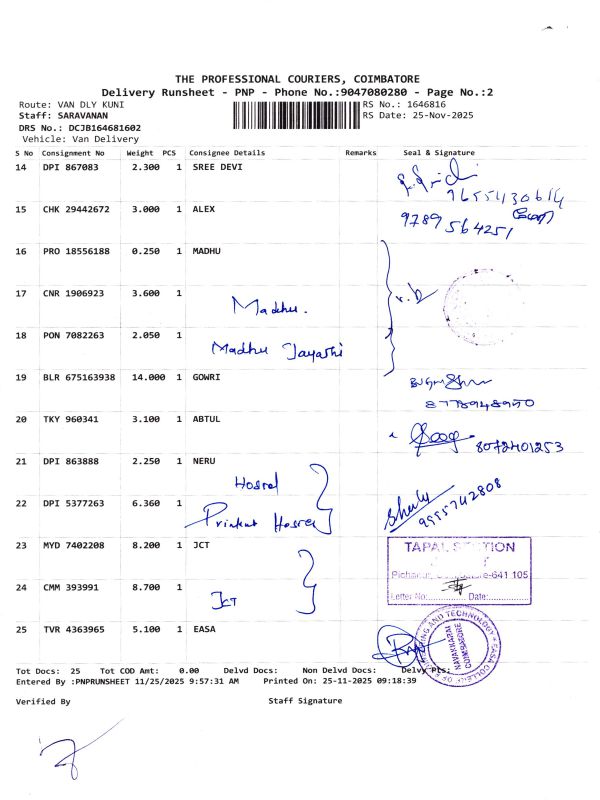 THE PROFESSIONAL COURIERS, COIMBATORE
Delivery Runsheet - PNP - Phone No.:9047080280 - Page No.:2
Route: VAN DLY KUNI
RS No.: 1646816
Staff: SARAVANAN
RS Date: 25-Nov-2025
DRS No.: DCJB164681602
Vehicle: Van Delivery
S No Consignment No Weight PCS Consignee Details Remarks Seal & Signature
14 DPI 867083 2.300 1 SREE DEVI
9655430614
15 CHK 29442672 3.000 1 ALEX
9789564251
16 PRO 18556188 0.250 1 MADHU
17 CNR 1906923 3.600 1 Madhu.
18 PON 7082263 2.050 1 Madhu Jayashi
19 BLR 675163938 14.000 1 GOWRI
8778948950
20 TKY 960341 3.100 1 ABTUL
8072401253
21 DPI 863888 2.250 1 NERU
Hostel
22 DPI 5377263 6.360 1 Hostel
9995742808
23 MYD 7402208 8.200 1 JCT
TAPAL STATION
Pichanur, Coimbatore-641 105
Letter No: Date:
24 CMM 393991 8.700 1 JCT
25 TVR 4363965 5.100 1 EASA
EASA COLLEGE OF ENGINEERING AND TECHNOLOGY
NAVAKKARAI
COIMBATORE
Tot Docs: 25 Tot COD Amt: 0.00 Delvd Docs: Non Delvd Docs: Delvy Pts:
Entered By :PNPRUNSHEET 11/25/2025 9:57:31 AM Printed On: 25-11-2025 09:18:39
Verified By Staff Signature